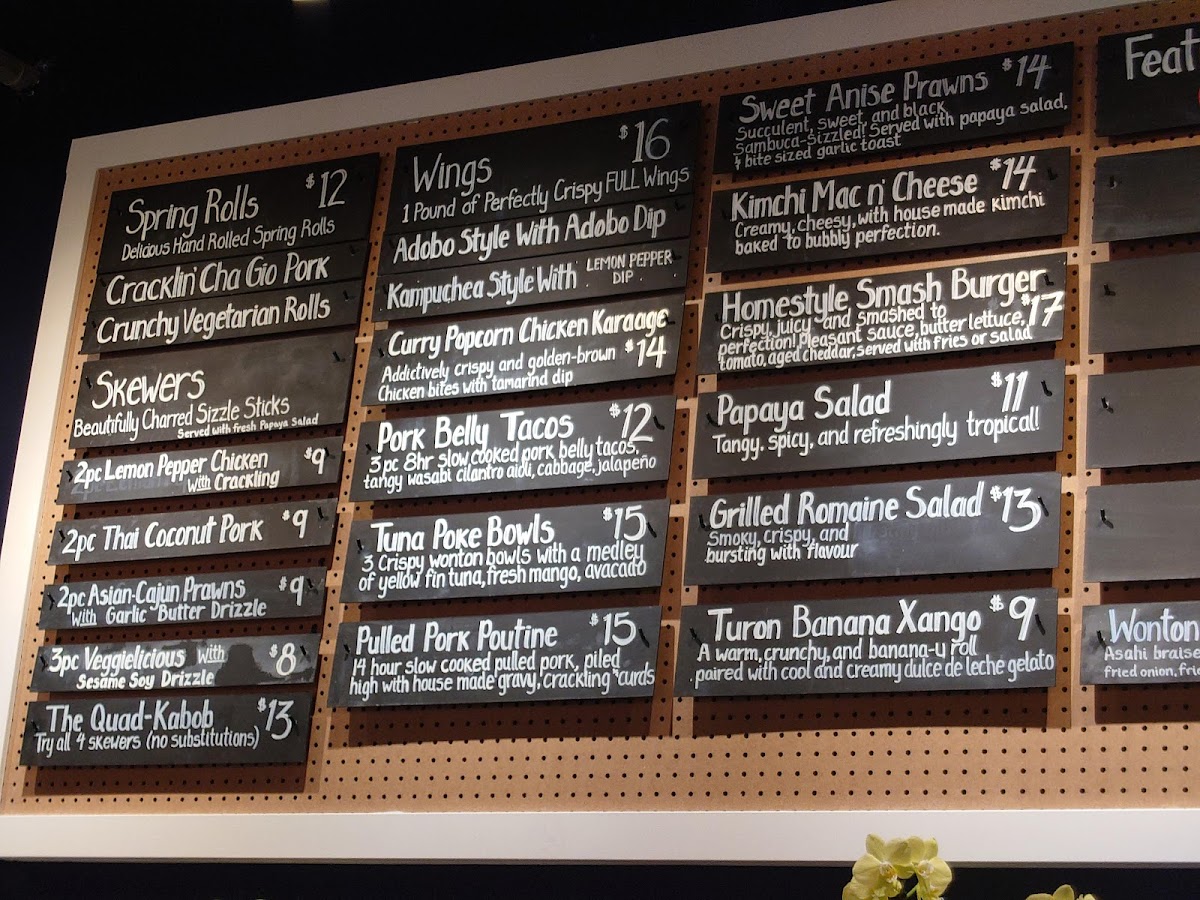 Spring Rolls $12
Delicious Hand Rolled Spring Rolls
Cracklin' Cha Gio Pork
Crunchy Vegetarian Rolls
Skewers
Beautifully Charred Sizzle Sticks
Served with fresh Papaya Salad
2pc Lemon Pepper Chicken $9
with Crackling
2pc Thai Coconut Pork $9
2pc Asian-Cajun Prawns $9
with Garlic Butter Drizzle
3pc Veggielicious with $8
Sesame Soy Drizzle
The Quad-Kabob $13
Try all 4 skewers (no substitutions)
Wings $16
1 Pound of Perfectly Crispy FULL Wings
Adobo Style With Adobo Dip
Kampuchea Style With LEMON PEPPER
DIP
Curry Popcorn Chicken Karaage
Addictively crispy and golden-brown $14
Chicken bites with tamarind dip
Pork Belly Tacos $12
3pc 8hr slow cooked pork belly tacos,
tangy wasabi cilantro aioli, cabbage, jalapeño
Tuna Poke Bowls $15
3 Crispy wonton bowls with a medley
of yellow fin tuna, fresh mango, avacado
Pulled Pork Poutine $15
14 hour slow cooked pulled pork, piled
high with house made gravy, crackling curds
Sweet Anise Prawns $14
Succulent, sweet, and black
Sambuca-sizzled! Served with papaya salad,
4 bite sized garlic toast
Kimchi Mac n' Cheese $14
Creamy, cheesy, with house made kimchi
baked to bubbly perfection.
Homestyle Smash Burger
Crispy, juicy and smashed to $17
perfection! Pleasant sauce, butter lettuce,
tomato, aged cheddar, served with fries or salad
Papaya Salad $11
Tangy, spicy, and refreshingly tropical!
Grilled Romaine Salad $13
Smoky, crispy, and
bursting with flavour
Turon Banana Xango $9
A warm, crunchy, and banana-y roll
paired with cool and creamy dulce de leche gelato
Feat
Wonton
Asahi braise
fried onion, fri